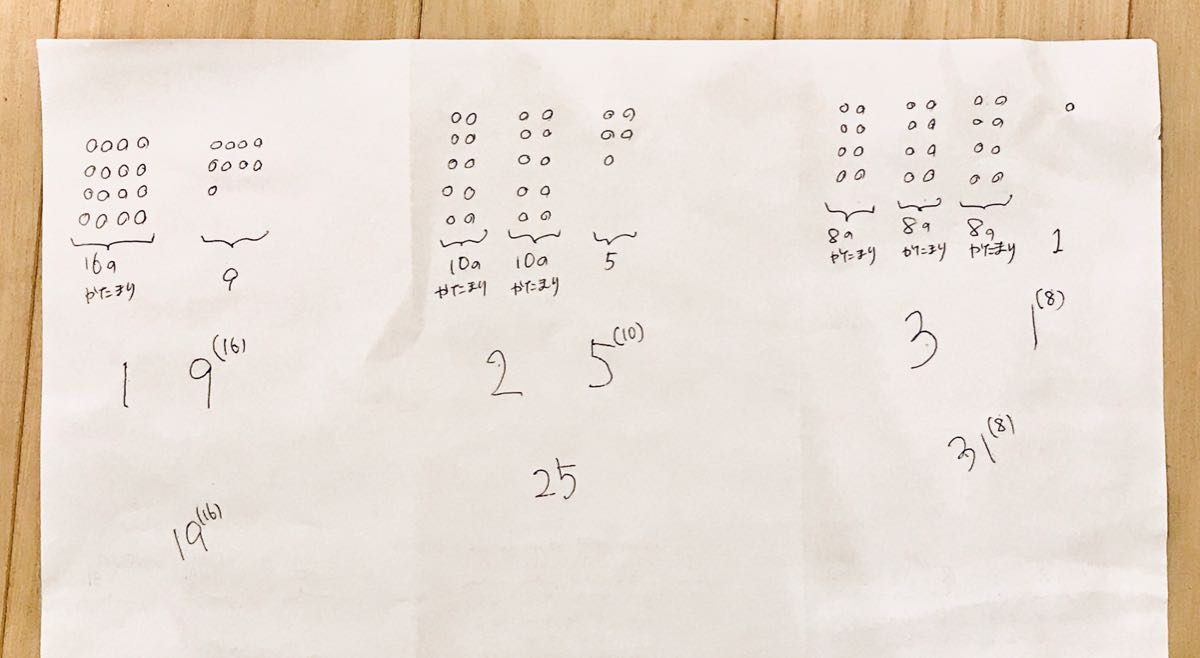 16の
かたまり
9
1 9(16)
19(16)
10の 10の 5
かたまり かたまり
2 5(10)
25
8の 8の 8の 1
かたまり かたまり かたまり
3 1(8)
31(8)